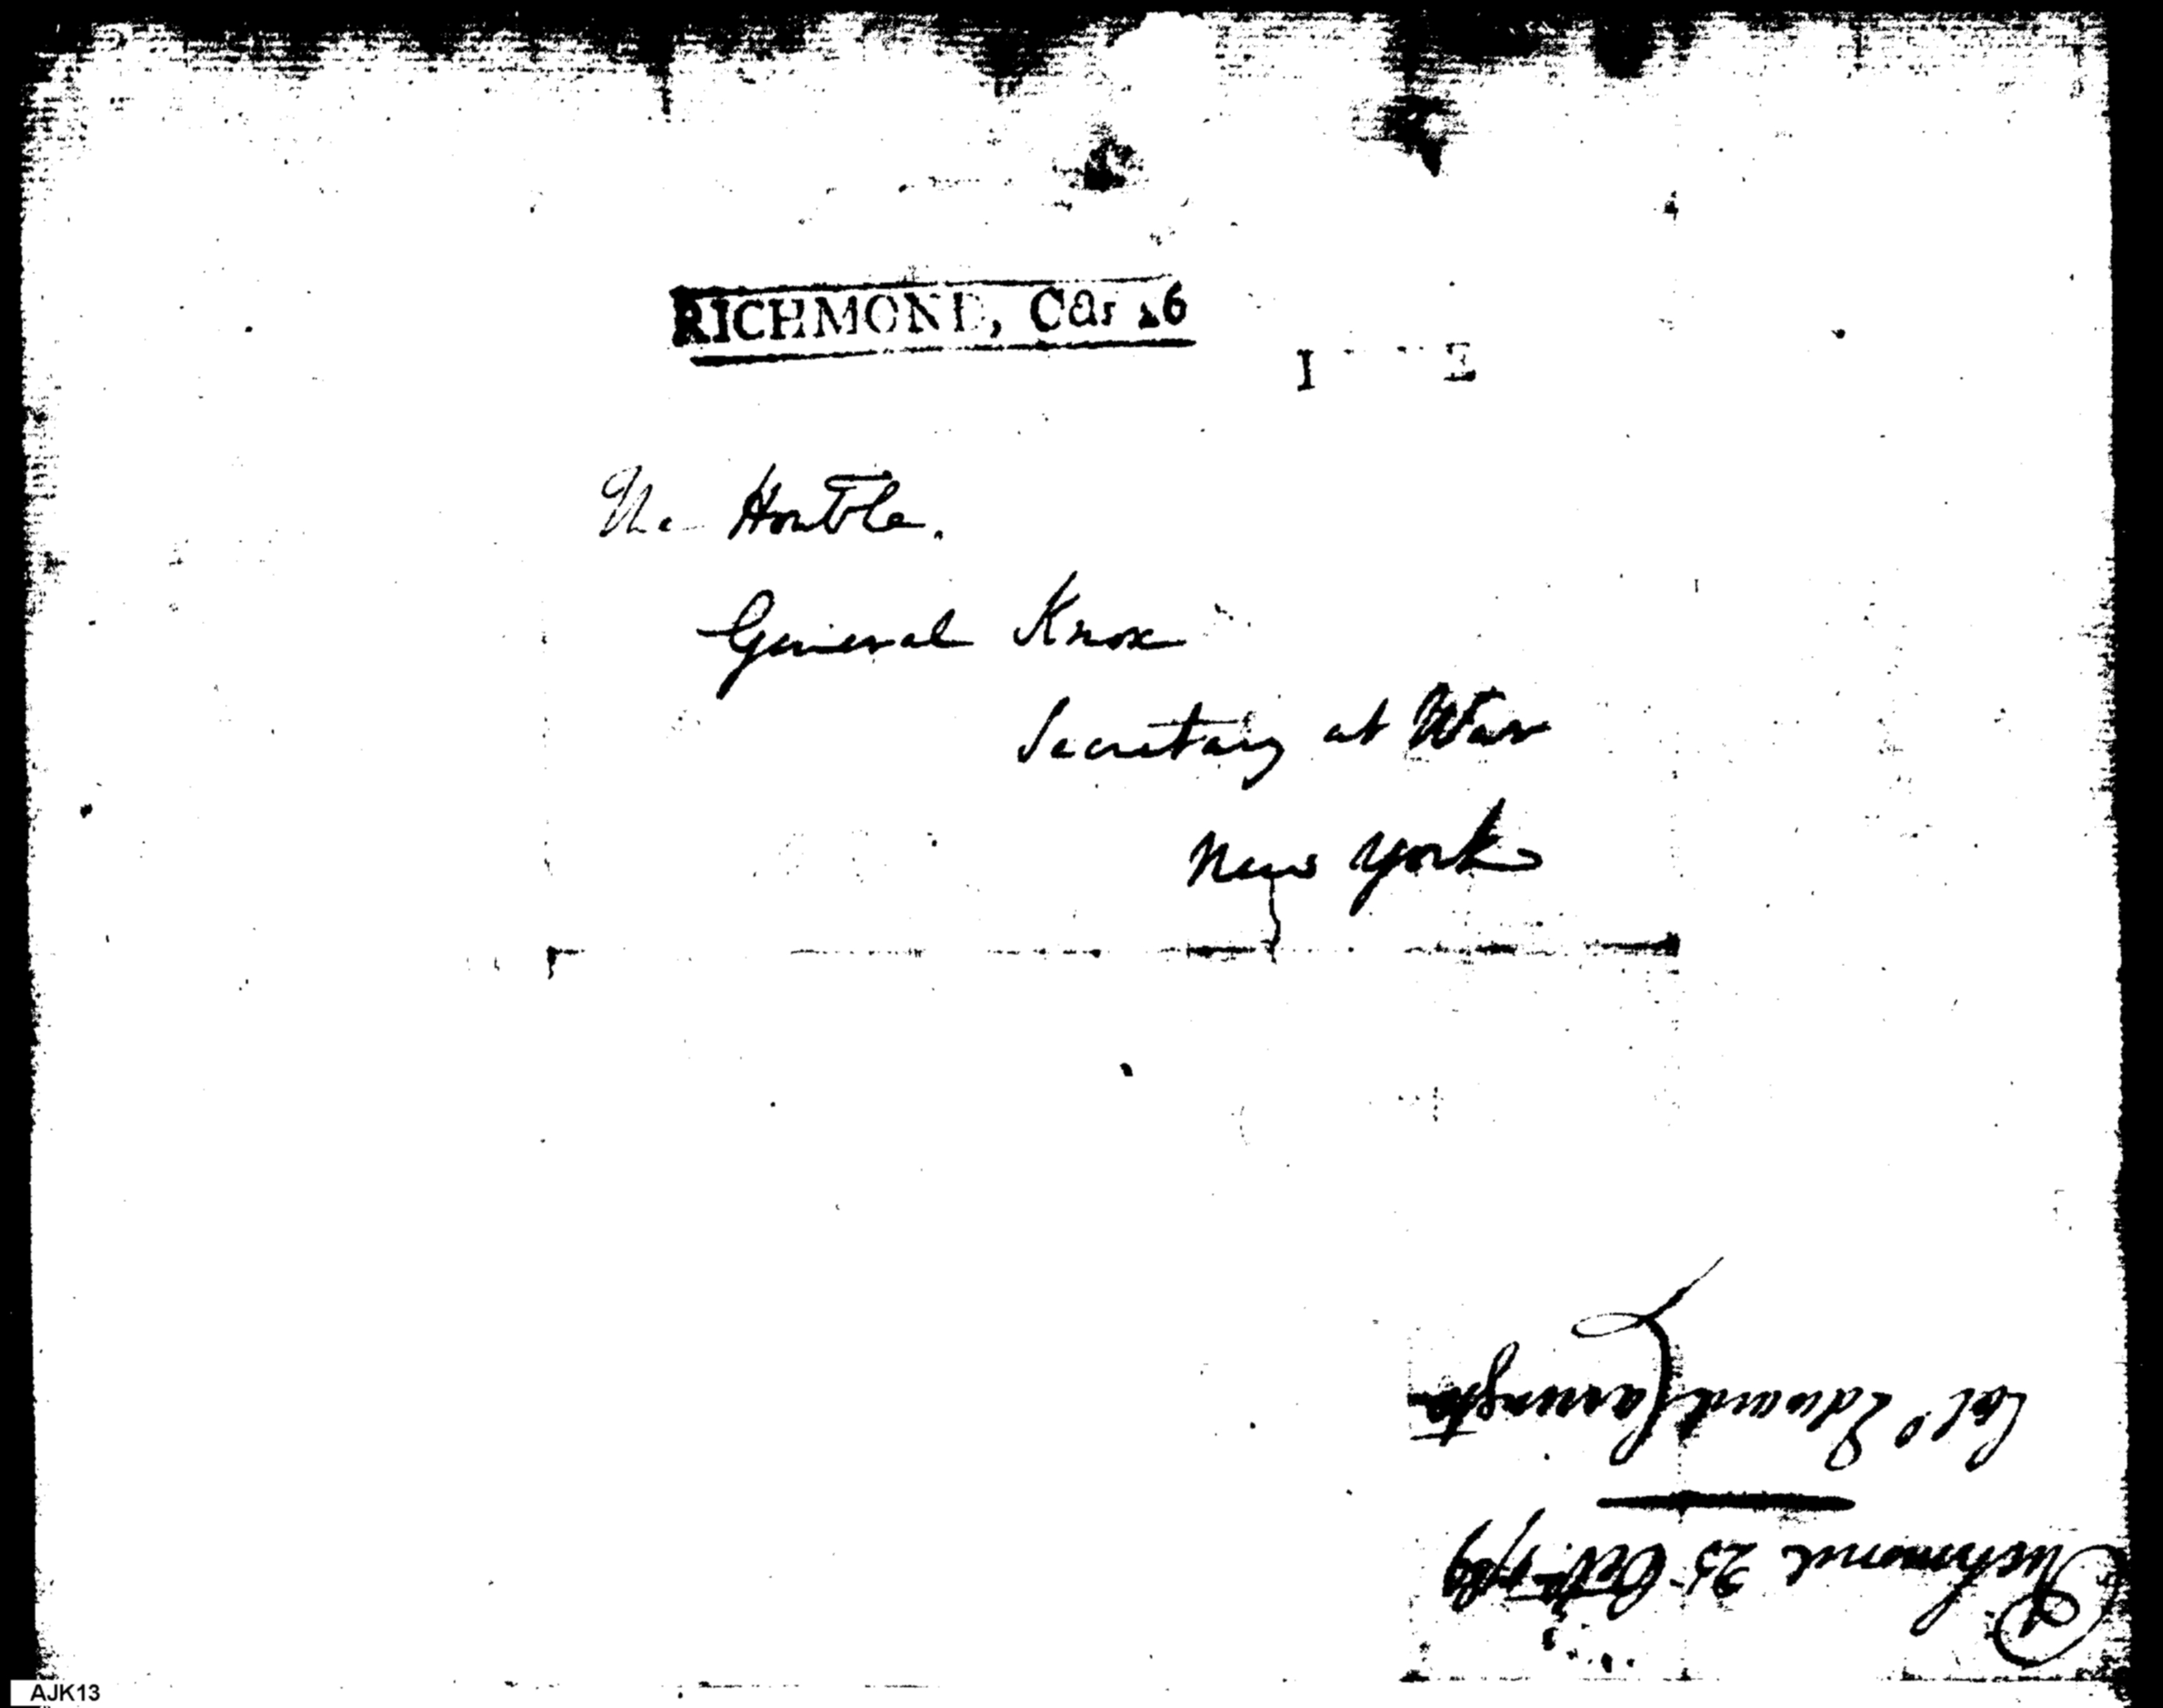 RICHMOND, Oct 26
The Honble.
General Knox
Secretary at War
New York
Richmond 25 Octr. 1789
Colo Edward Carrington
AJK13